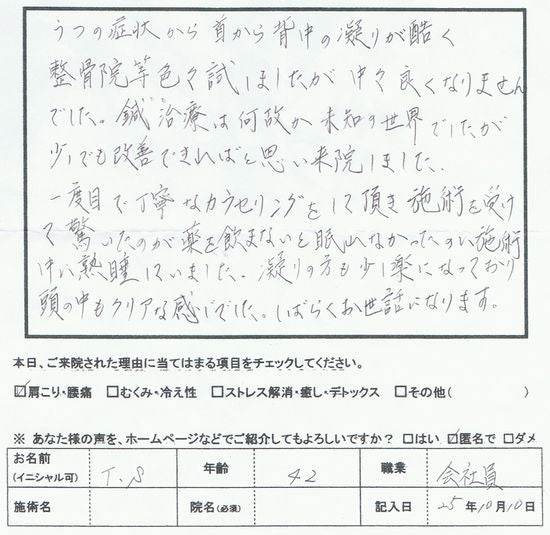 うつの症状から首から背中の凝りが酷く
整骨院等色々試しましたが中々良くなりません
でした。鍼治療は何故か未知の世界でしたが
少しでも改善できればと思い来院しました。
一度目で丁寧なカウンセリングをして頂き施術を受け
て驚いたのが薬を飲まないと眠れなかったのに施術
中に熟睡していました。凝りの方も少し楽になっており
頭の中もクリアな感じでした。しばらくお世話になります。
本日、ご来院された理由に当てはまる項目をチェックしてください。
☑肩こり・腰痛 □むくみ・冷え性 □ストレス解消・癒し・デトックス □その他( )
※ あなた様の声を、ホームページなどでご紹介してもよろしいですか? □はい ☑匿名で □ダメ
お名前 (イニシャル可) T.S 年齢 42 職業 会社員
施術名 院名(必須) 記入日 25年10月10日